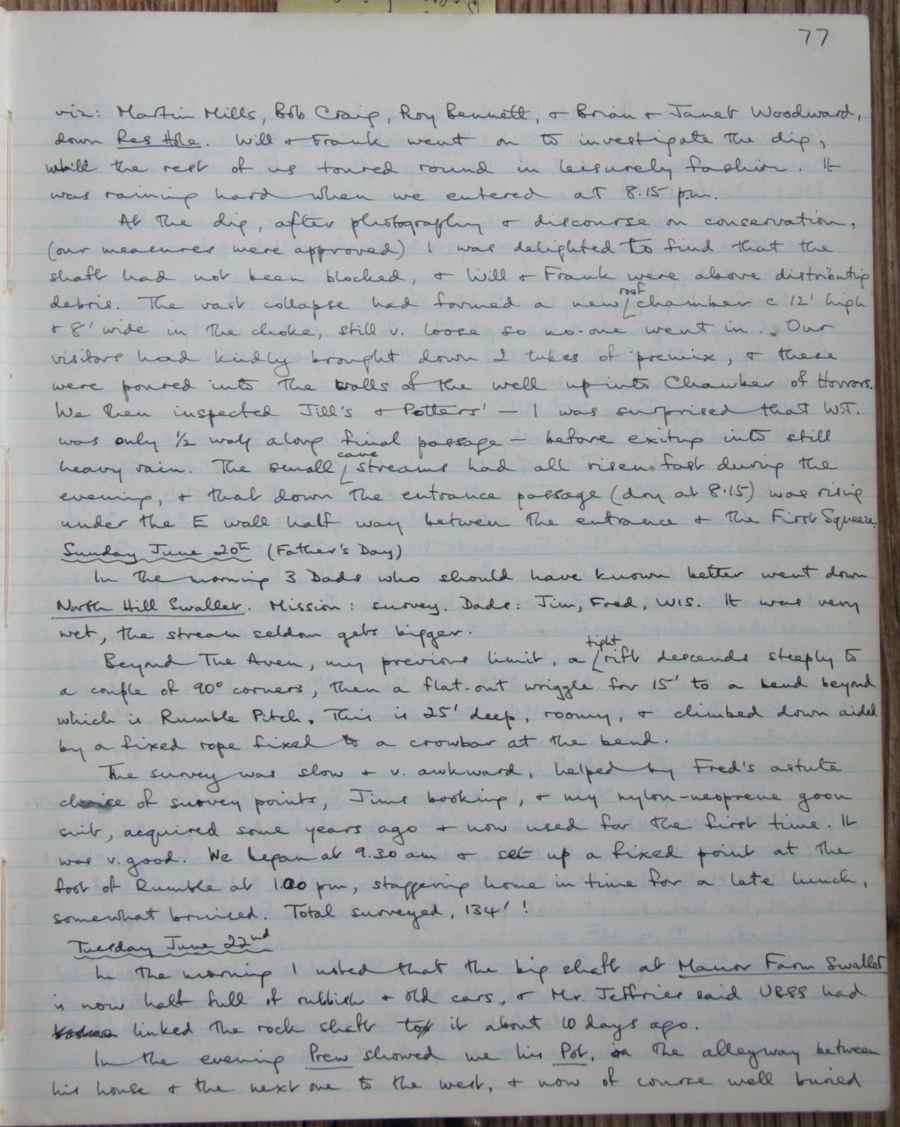 77
viz: Martin Mills, Bob Craig, Roy Bennett, & Brian & Janet Woodward,
down Res Hole. Will & Frank went on to investigate the dig,
while the rest of us toured round in leisurely fashion. It
was raining hard when we entered at 8.15 pm.
At the dig, after photography & discourse on conservation,
(our measures were approved) I was delighted to find that the
shaft had not been blocked, & Will & Frank were above distributing
debris. The vast collapse had formed a new roof chamber c 12' high
& 8' wide in the choke, still v. loose so no-one went in. Our
visitors had kindly brought down 2 tubes of premix, & these
were poured into the walls of the well up into Chamber of Horrors.
We then inspected Jill's & Potters' — I was surprised that W.T.
was only ½ way along final passage — before exiting into still
heavy rain. The small cave streams had all risen fast during the
evening, & that down the entrance passage (dry at 8.15) was rising
under the E wall half way between the entrance & the First Squeeze.
Sunday June 20th (Father's Day)
In the morning 3 Dads who should have known better went down
North Hill Swallet. Mission: survey. Dads: Jim, Fred, WIS. It was very
wet, the stream seldom gets bigger.
Beyond The Aven, my previous limit, a tight rift descends steeply to
a couple of 90° corners, then a flat-out wriggle for 15' to a bend beyond
which is Rumble Pitch. This is 25' deep, roomy, & climbed down aided
by a fixed rope fixed to a crowbar at the bend.
The survey was slow & v. awkward, helped by Fred's astute
choice of survey points, Jims booking, & my nylon-neoprene goon
suit, acquired some years ago & now used for the first time. It
was v. good. We began at 9.30 am & set up a fixed point at the
foot of Rumble at 1.00 pm, staggering home in time for a late lunch,
somewhat bruised. Total surveyed, 134'!
Tuesday June 22nd
In the morning I noted that the big shaft at Manor Farm Swallet
is now half full of rubbish & old cars, & Mr. Jeffries said UBSS had
linked the rock shaft to it about 10 days ago.
In the evening Prew showed me his Pot, in the alleyway between
his house & the next one to the west, & now of course well buried